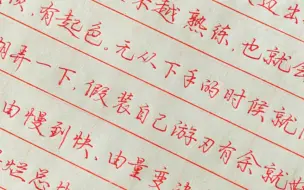 越熟练,也就会
有起色。无从下手的时候就
弄一下,假装自己游刃有余就
由慢到快、由量变